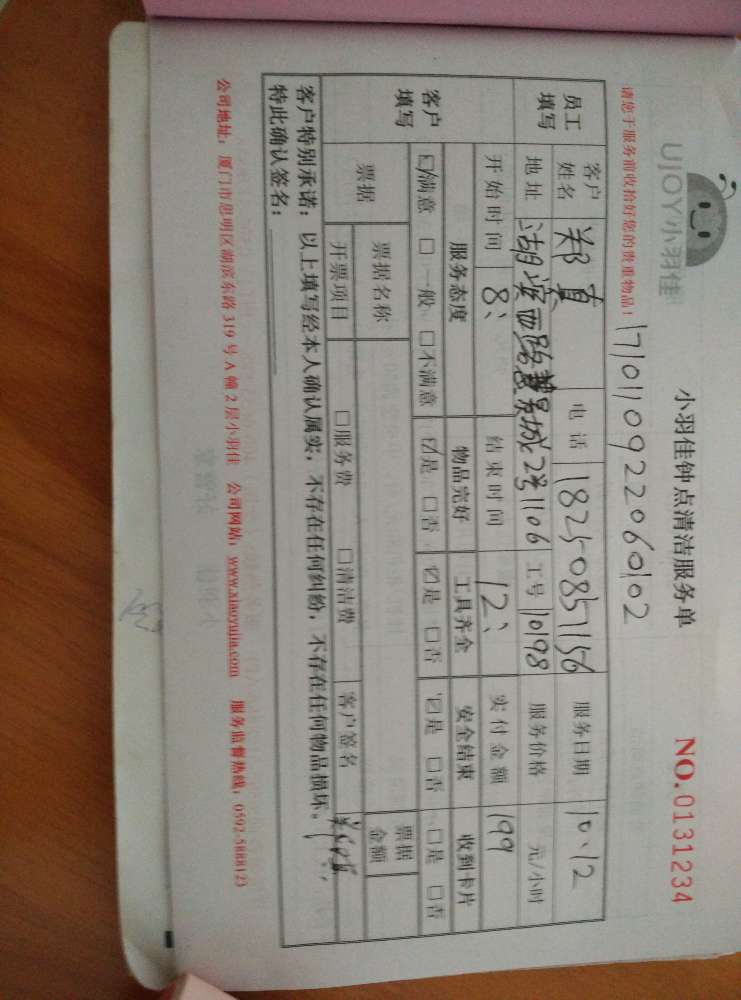 UJOY小羽佳
小羽佳钟点清洁服务单
NO.0131234
请您于服务前收拾好您的贵重物品！
1710110922060102
员工填写
客户姓名 郑真 电话 18250857156 服务日期 10、12
地址 湖滨西路慧景城2号1106 工号 10198 服务价格 元/小时
开始时间 8： 结束时间 12： 实付金额 199
客户填写
服务态度 物品完好 工具齐全 安全结束 收到卡片
☑满意 □一般 □不满意 ☑是 □否 ☑是 □否 ☑是 □否 □是 □否
票据 票据名称 票据金额
开票项目 □服务费 □清洁费 客户签名
客户特别承诺：以上填写经本人确认属实，不存在任何纠纷，不存在任何物品损坏。
特此确认签名：
公司地址：厦门市思明区湖滨东路319号A幢2层小羽佳 公司网站：www.xiaoyujia.com 服务监督热线：0592-5888123